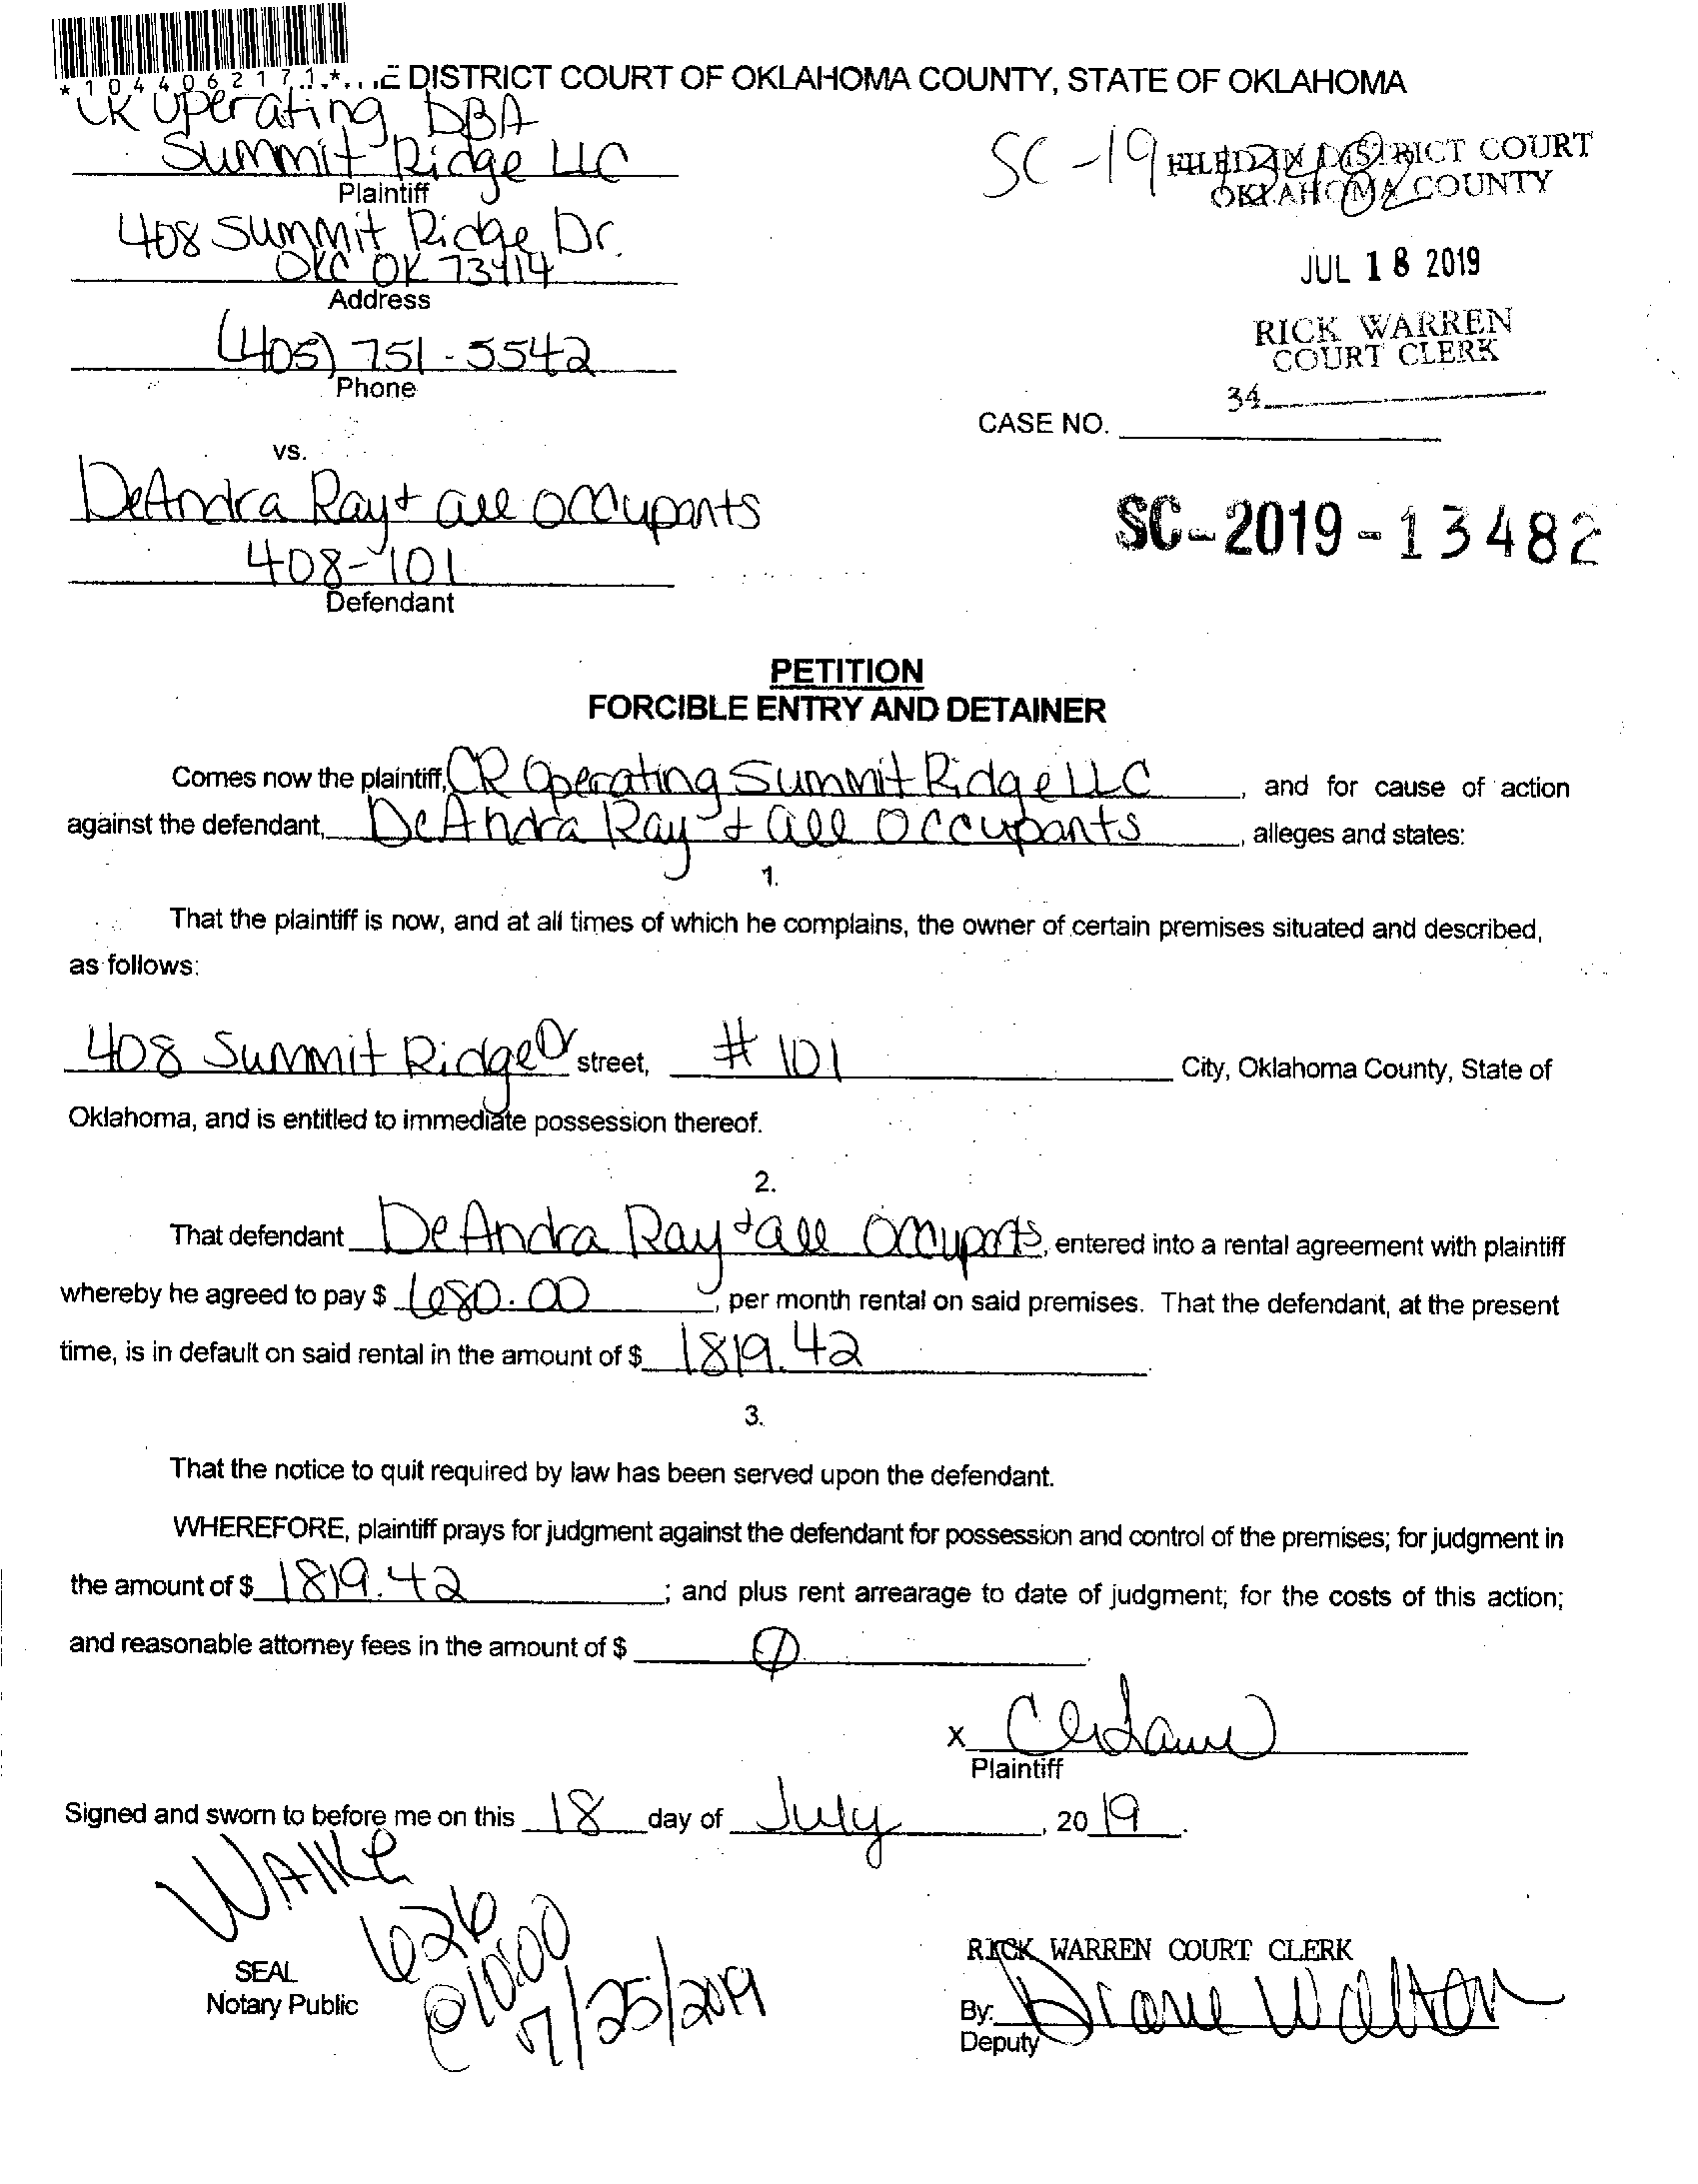 *1044062171*
E DISTRICT COURT OF OKLAHOMA COUNTY, STATE OF OKLAHOMA
CR Operating DBA
Summit Ridge LLC
Plaintiff
408 Summit Ridge Dr.
OKC OK 73414
Address
(405) 751-5542
Phone
SC-19 13482
FILED IN DISTRICT COURT
OKLAHOMA COUNTY
JUL 18 2019
RICK WARREN
COURT CLERK
34
CASE NO.
vs.
DeAndra Ray + all occupants
408-101
Defendant
SC-2019-13482
PETITION
FORCIBLE ENTRY AND DETAINER
Comes now the plaintiff, CR Operating Summit Ridge LLC, and for cause of action
against the defendant, DeAndra Ray + all Occupants, alleges and states:
1.
That the plaintiff is now, and at all times of which he complains, the owner of certain premises situated and described,
as follows:
408 Summit Ridge Dr street, # 101 City, Oklahoma County, State of
Oklahoma, and is entitled to immediate possession thereof.
2.
That defendant DeAndra Ray + all Occupants, entered into a rental agreement with plaintiff
whereby he agreed to pay $ 680.00, per month rental on said premises. That the defendant, at the present
time, is in default on said rental in the amount of $ 1819.42.
3.
That the notice to quit required by law has been served upon the defendant.
WHEREFORE, plaintiff prays for judgment against the defendant for possession and control of the premises; for judgment in
the amount of $ 1819.42; and plus rent arrearage to date of judgment; for the costs of this action;
and reasonable attorney fees in the amount of $ 0.
X
Plaintiff
Signed and sworn to before me on this 18 day of July, 2019.
WAlke
626
@10:00
7/25/2019
SEAL
Notary Public
RICK WARREN COURT CLERK
By: Diane Walton
Deputy